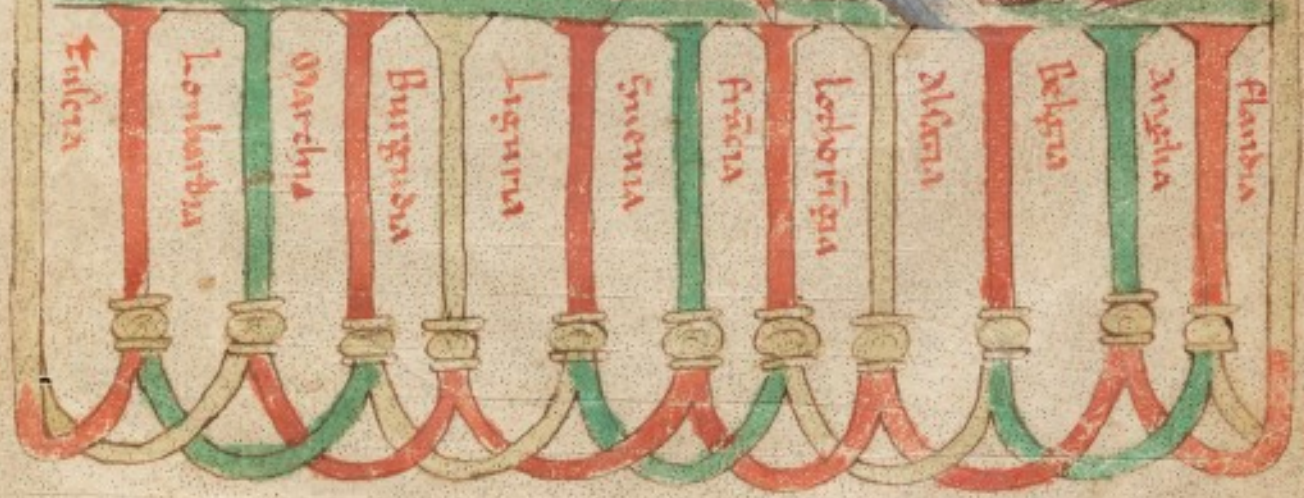 Tuscia
Lombardia
Marchia
Burgundia
Liguria
Guienna
frācia
Lothorīgia
Alsacia
Belgia
Anglia
flandria